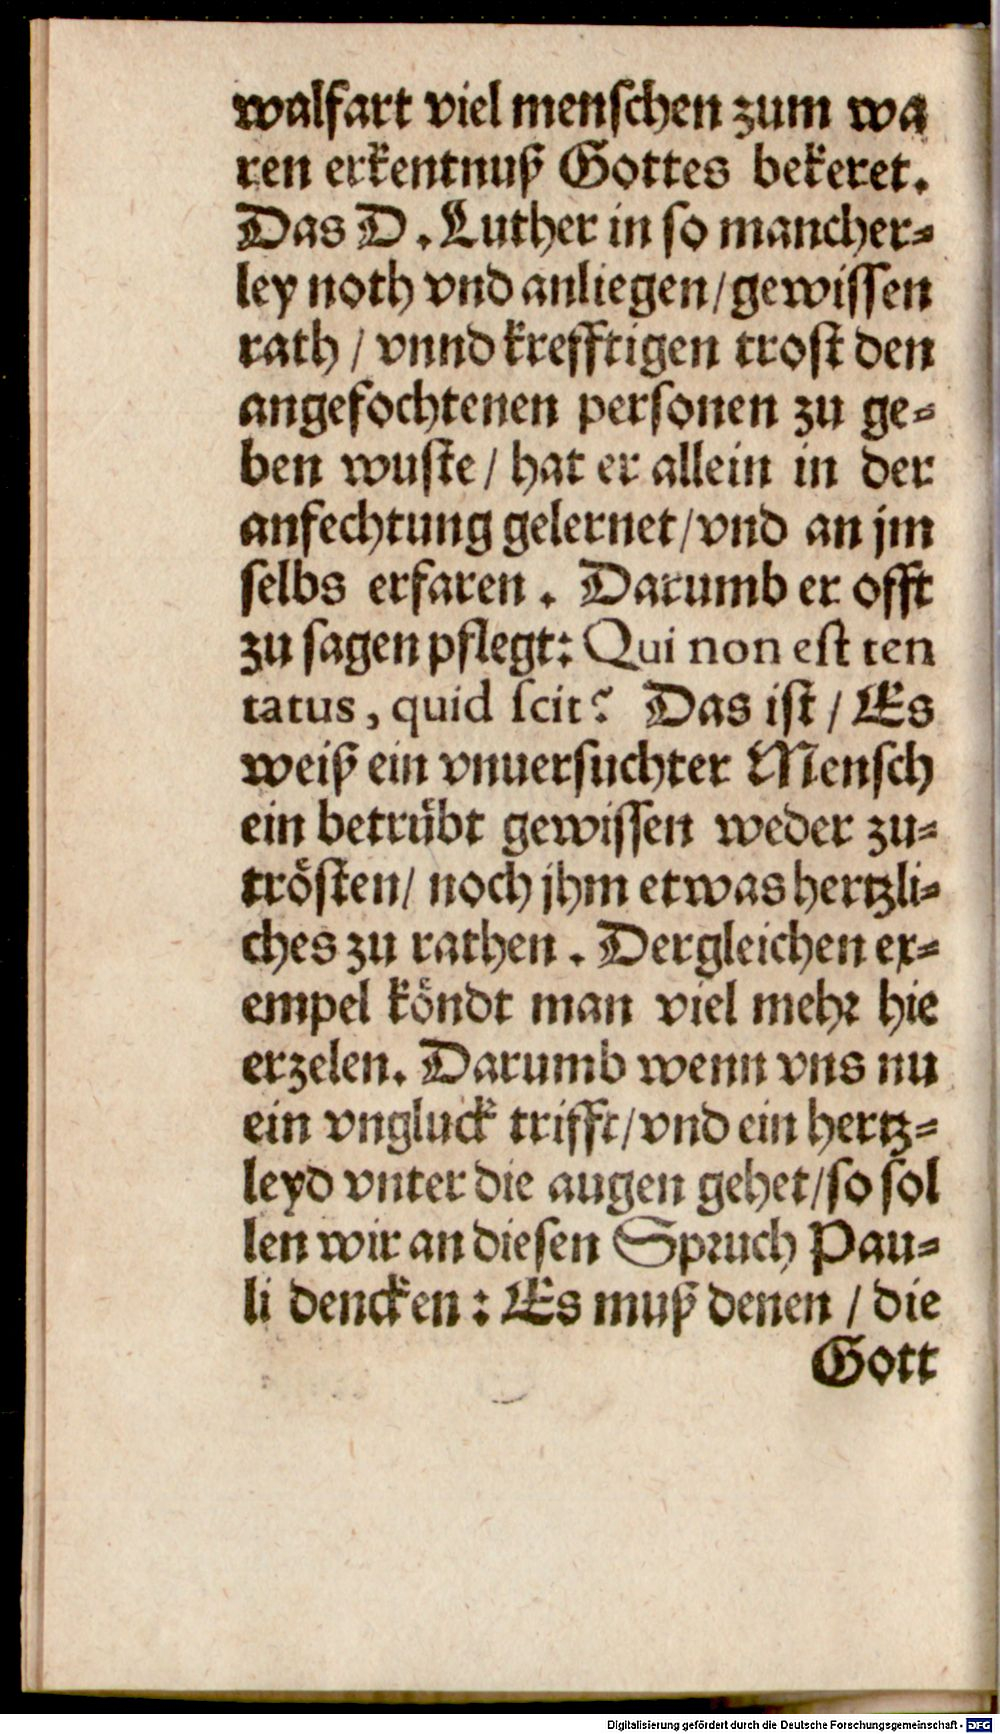 walfart viel menschen zum wa
ren erkentnuß Gottes bekeret.
Das D. Luther in so mancher⸗
ley noth vnd anliegen/gewissen
rath / vnnd krefftigen trost den
angefochtenen personen zu ge⸗
ben wuste / hat er allein in der
anfechtung gelernet/vnd an jm
selbs erfaren. Darumb er offt
zu sagen pflegt: Qui non est ten
tatus, quid scit? Das ist / Es
weiß ein vnuersuchter Mensch
ein betrübt gewissen weder zu⸗
trösten/ noch jhm etwas hertzli⸗
ches zu rathen. Dergleichen ex⸗
empel köndt man viel mehr hie
erzelen. Darumb wenn vns nu
ein vngluck trifft/vnd ein hertz⸗
leyd vnter die augen gehet/so sol
len wir an diesen Spruch Pau⸗
li dencken: Es muß denen / die
Gott
Digitalisierung gefördert durch die Deutsche Forschungsgemeinschaft - DFG